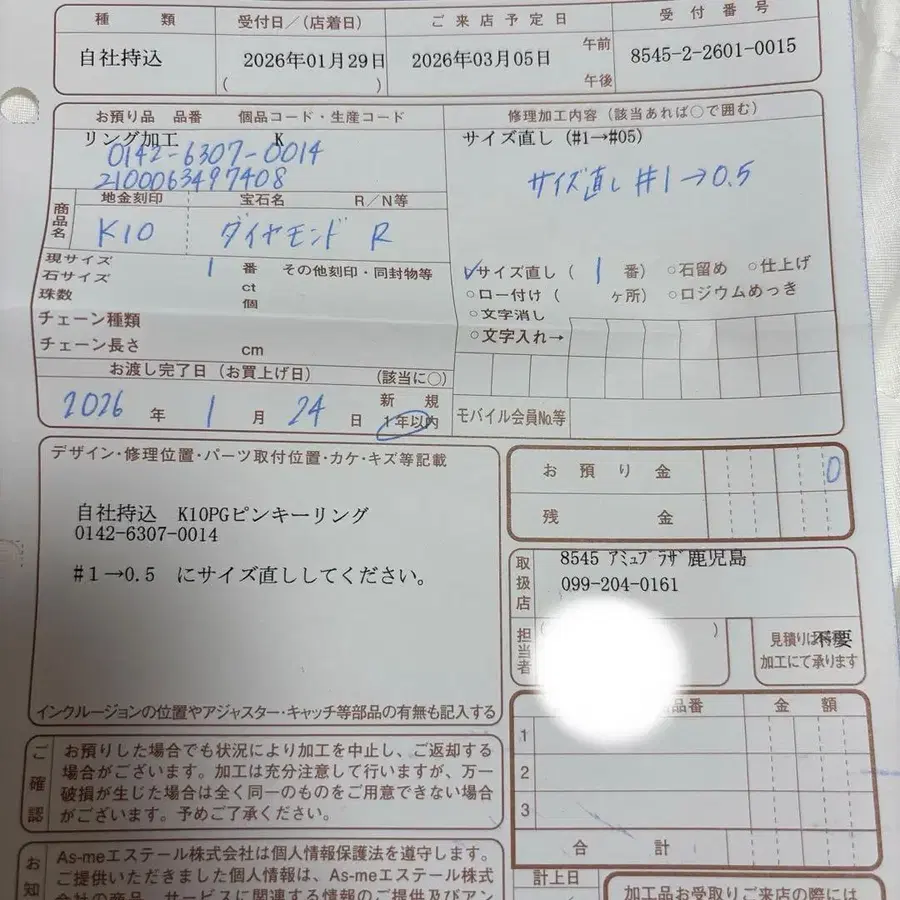 種 類 受付日/(店着日) ご来店予定日 受付番号
自社持込 2026年01月29日 2026年03月05日 午前 午後 8545-2-2601-0015
( )
お預り品 品番 個品コード・生産コード 修理加工内容(該当あれば○で囲む)
リング加工 K サイズ直し(#1→#05)
0142-6307-0014
2100063497408
サイズ直し #1→0.5
商品名 地金刻印 宝石名 R/N等
K10 ダイヤモンド R
現サイズ 1 番 その他刻印・同封物等
石サイズ ct
珠数 個
チェーン種類
チェーン長さ cm
✓サイズ直し( 1 番) ○石留め ○仕上げ
○ロー付け( ヶ所) ○ロジウムめっき
○文字消し
○文字入れ→
お渡し完了日(お買上げ日) (該当に○)
2026 年 1 月 24 日 新規 1年以内
モバイル会員No.等
デザイン・修理位置・パーツ取付位置・カケ・キズ等記載
自社持込 K10PGピンキーリング
0142-6307-0014
#1→0.5 にサイズ直ししてください。
インクルージョンの位置やアジャスター・キャッチ等部品の有無も記入する
お預り金 0
残金
取扱店 8545 アミュプラザ鹿児島
099-204-0161
担当者 ( )
見積りは不要
加工にて承ります
品番 金額
1
2
3
合計
ご確認
お預りした場合でも状況により加工を中止し、ご返却する
場合がございます。加工は充分注意して行いますが、万一
破損が生じた場合は全く同一のものをご用意できない場合
がございます。予めご了承ください。
お知
As-meエステール株式会社は個人情報保護法を遵守します。
ご提供いただきました個人情報は、As-meエステール株式
会社の商品、サービスに関連する情報のご提供及びアン
計上日
加工品お受取りご来店の際には